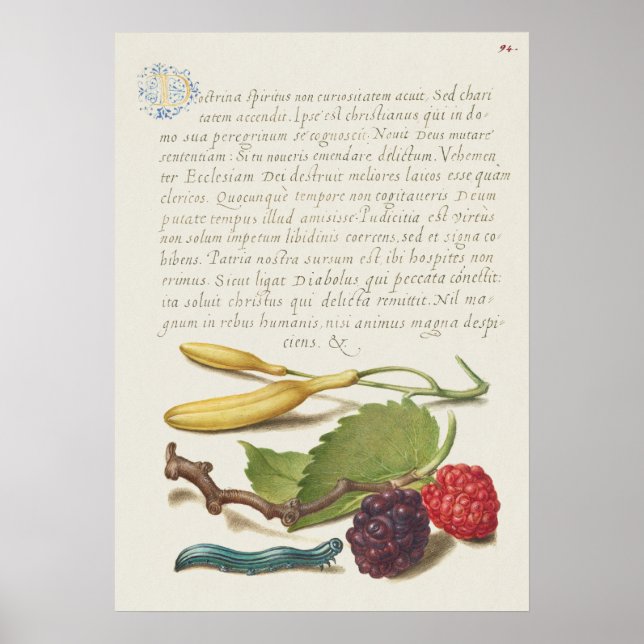 94.
Doctrina spiritus non curiositatem acuit, Sed chari
tatem accendit. Ipse est christianus, qui in do-
mo sua peregrinum se cognoscit. Nouit Deus mutare
sententiam: Si tu noueris emendare delictum. Vehemen
ter Ecclesiam Dei destruit meliores laicos esse quàm
clericos. Quocunquè tempore non cogitaueris Deum
putate tempus illud amisisse. Pudicitia est virtus
non solum impetum libidinis coercens, sed et signa co-
hibens. Patria nostra sursum est, ibi hospites non
erimus. Sicut ligat Diabolus qui peccata conectit:
ita soluit christus qui delicta remittit. Nil ma-
gnum in rebus humanis, nisi animus magna despi-
ciens. &.